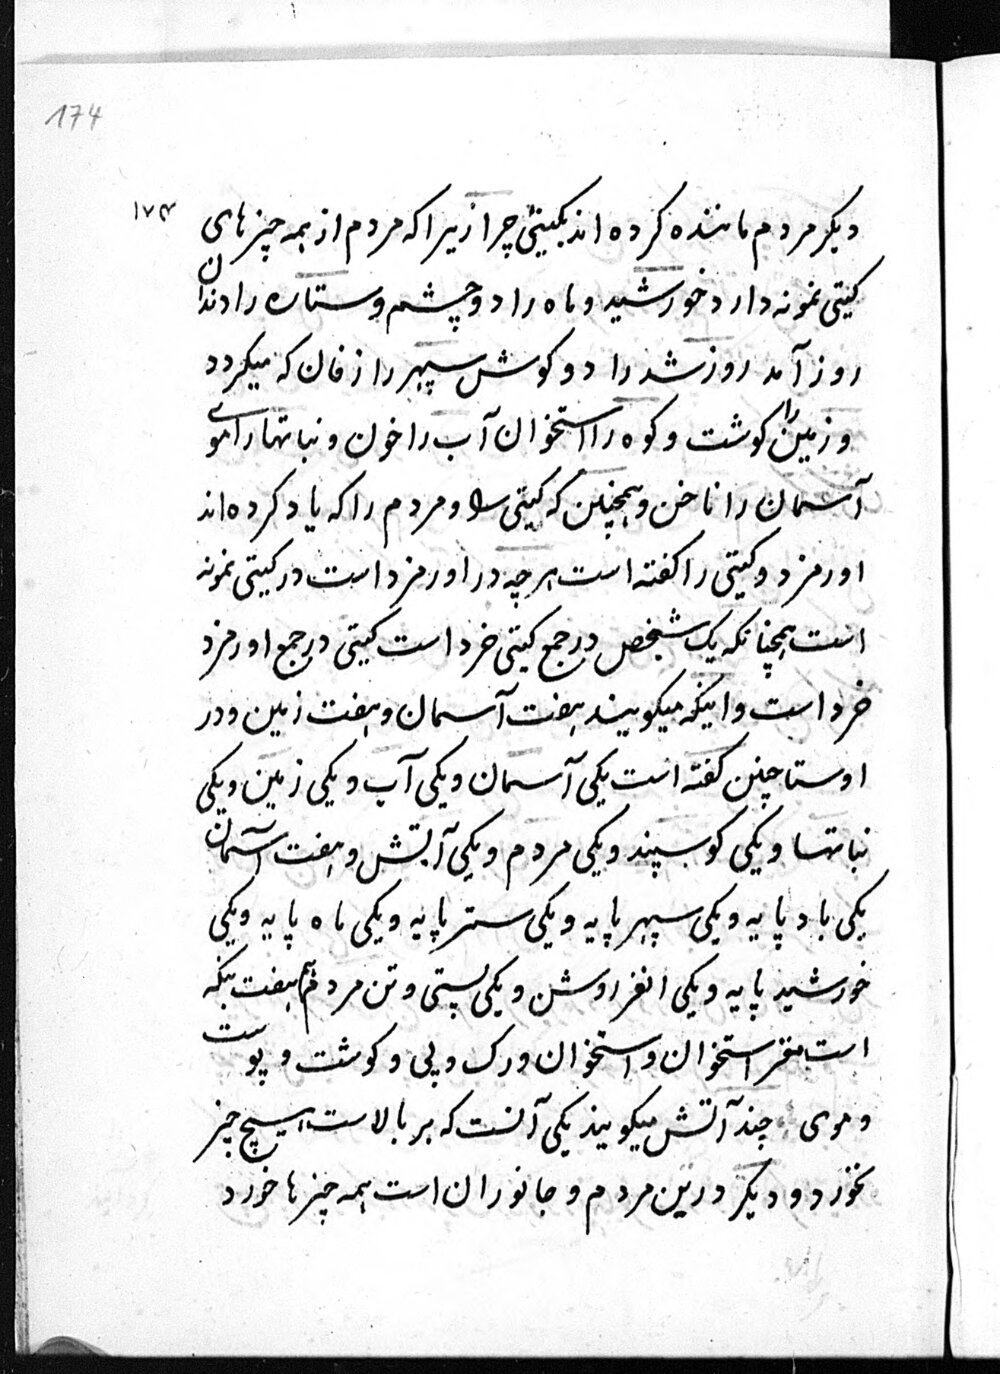 174
۱۷۴
دیکر مردم ماننده کرده اند بکیتی چرا زیرا که مردم از همه چیزهای
کیتی نمونه دارد خورشید و ماه را دو چشم و ستاره را دندان
روز آمد روز شد را دو کوش سپهر را زفان که میکردد
و زمین را کوشت و کوه را استخوان آب را خون و نباتها را موی
آسمان را ناخن و همچنین که کیتی را و مردم را که یاد کرده اند
اورمزد و کیتی را کفته است هر چه در اورمزد است در کیتی نمونه
است همچنانکه یک شخص در جمع کیتی خرد است کیتی در جمع اورمزد
خرد است و اینکه میکویند هفت آسمان و هفت زمین و در
اوستا چنین کفته است یکی آسمان و یکی آب و یکی زمین و یکی
نباتها و یکی کوسپند و یکی مردم و یکی آتش و هفت آسمان
یکی باد پایه و یکی سپهر پایه و یکی ستر پایه و یکی ماه پایه و یکی
خورشید پایه و یکی انغر روشن و یکی پستی و تن مردم هفت
است مغز استخوان و استخوان و رک و پی و کوشت و پوست
و موی چند آتش میکویند یکی آنست که بر بالاست هیچ چیز
نخورد و دیکر در تن مردم و جانوران است همه چیزها خورد